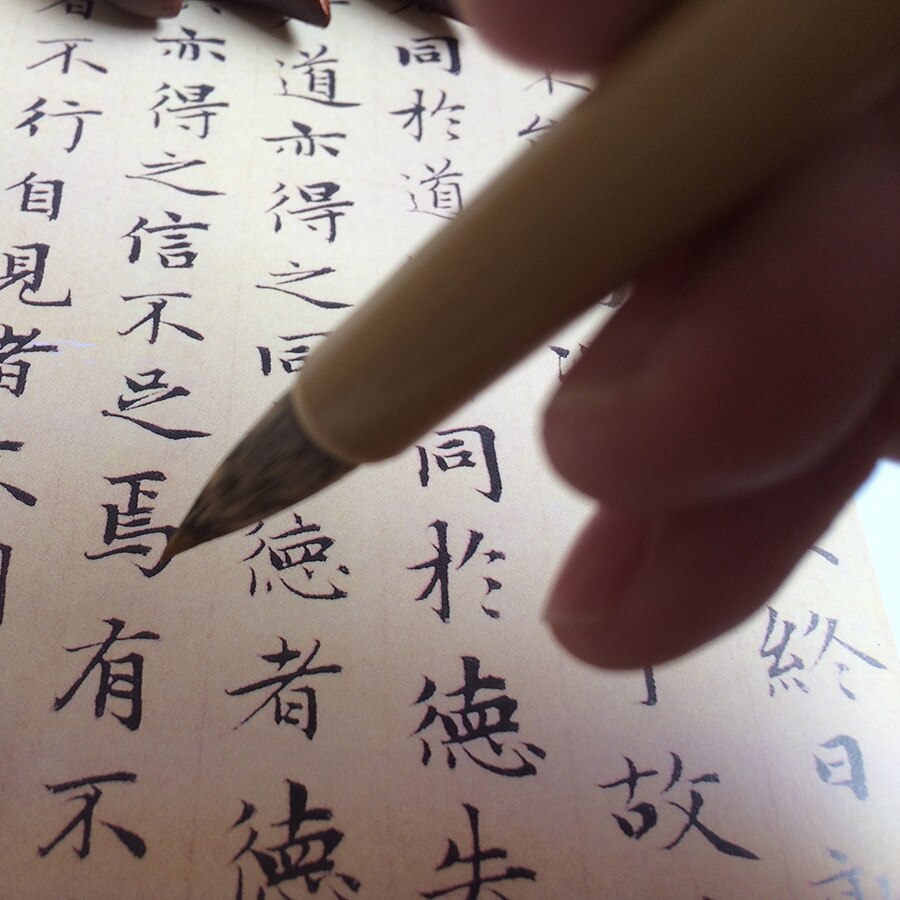 終日
故
同於道同於德失
道亦得之同德者德
亦得之信不足焉有不
不行自見者